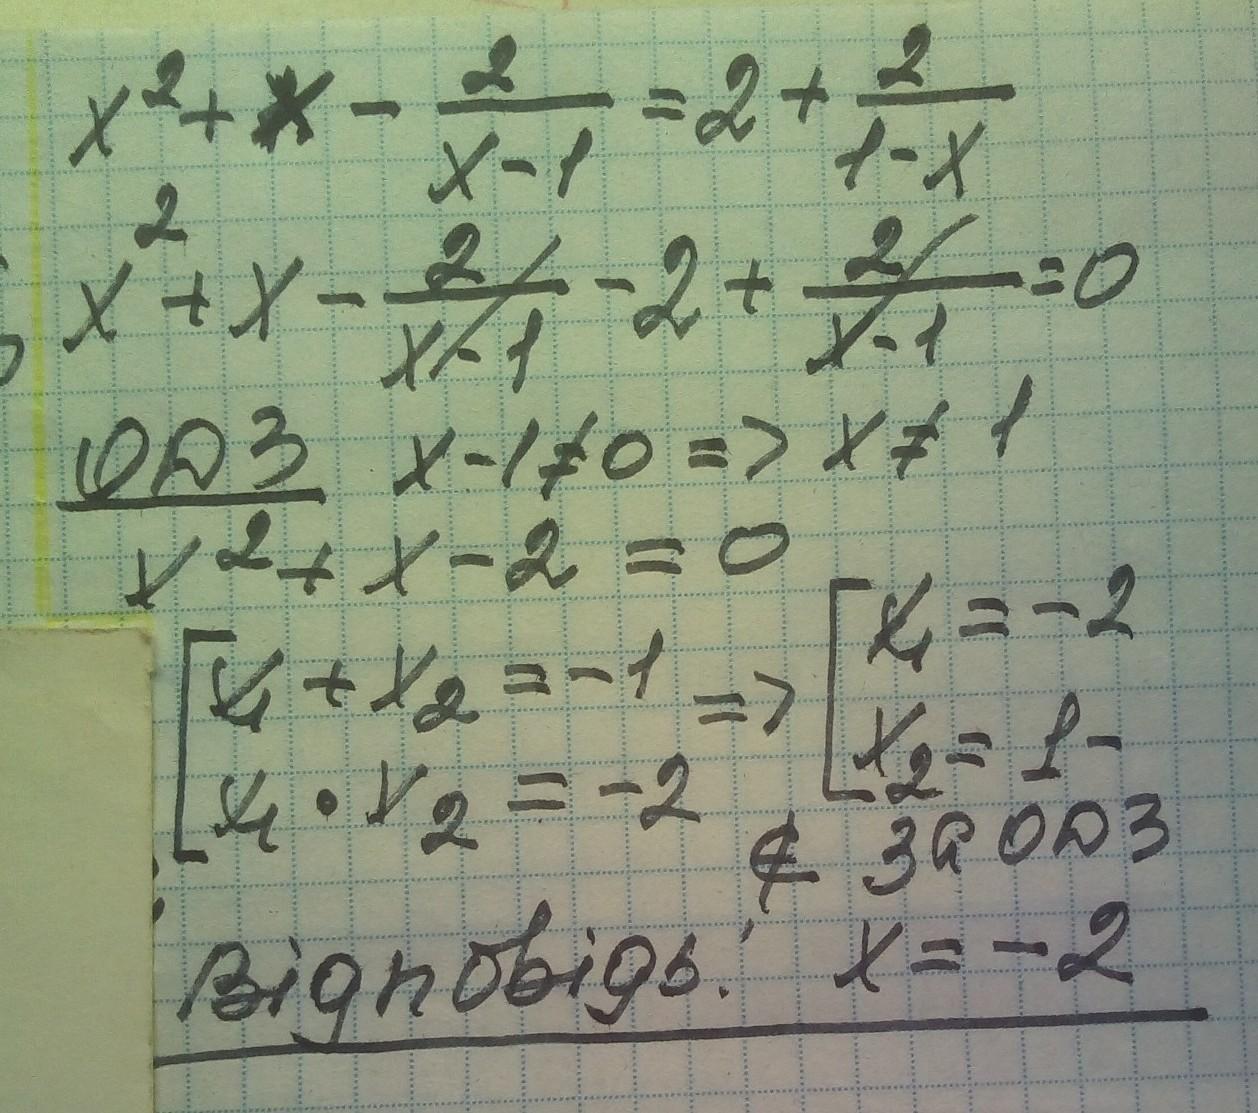 x² + x - 2/(x-1) = 2 + 2/(1-x)
x² + x - 2/(x-1) - 2 + 2/(x-1) = 0
ОДЗ x-1≠0 => x≠1
x² + x - 2 = 0
[x₁ + x₂ = -1 => [x₁ = -2
x₁ · x₂ = -2 x₂ = 1 -
∉ за ОДЗ
Відповідь: x = -2